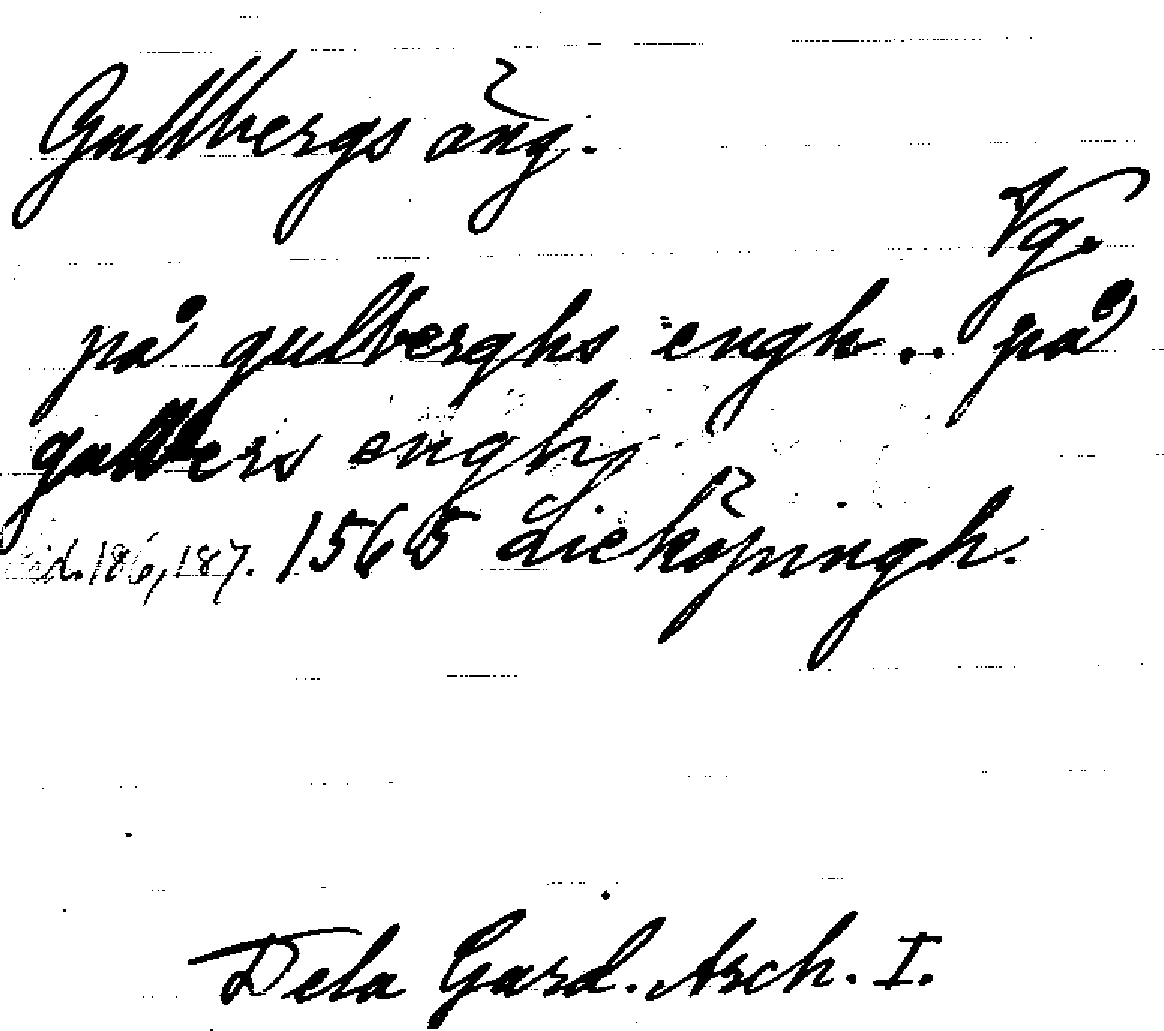 Gullbergs äng.
Vg.
på gulberghs engh.. på
gullbers engh
sid. 186, 187. 1565 Lieköpingh.
Dela Gard. Arch. I.